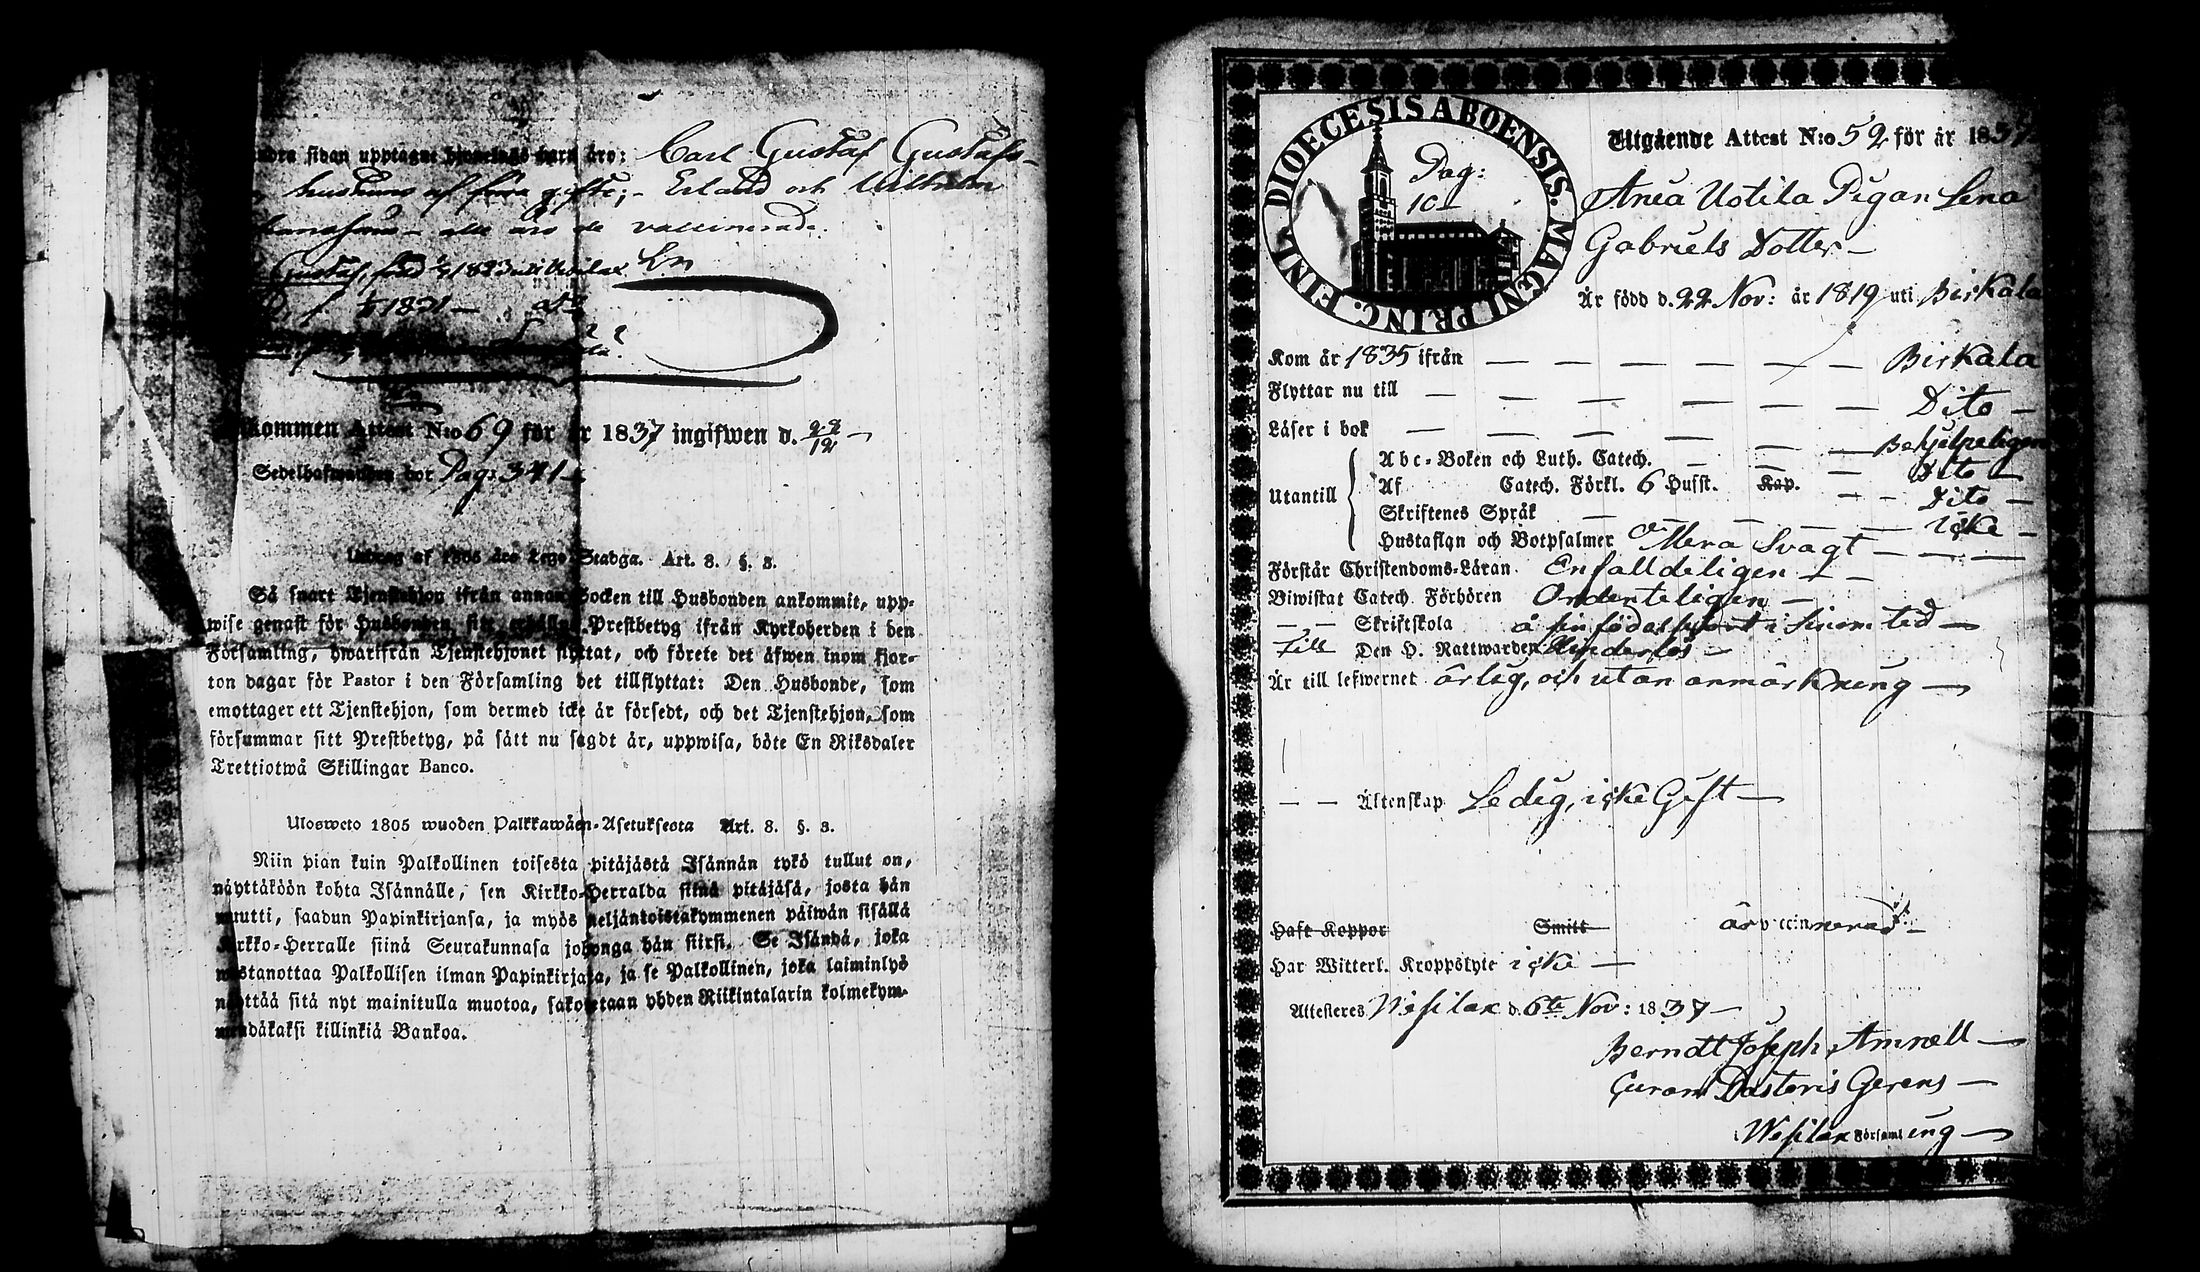 sidan upptagne äro: Carl Gustaf Gustafs-
af förra giftet; Erland och Wilhelm
alla äro de vaccinerade.
Gustaf, född 1823
1821 —
kommen Attest N:o 69 för år 1837 ingifwen d. 28/12 —
Sedelhafwanden bor Pag: 341
Utdrag af 1805 års Lego Stadga. Art. 8. §. 3.
Så snart Tjenstehjon ifrån annan Socken till Husbonden ankommit, upp-
wise genast för Husbonden sitt erhållna Prestbetyg ifrån Kyrkoherden i den
Församling, hwarifrån Tjenstehjonet flyttat, och förete det äfwen inom fjor-
ton dagar för Pastor i den Församling det tillflyttat: Den Husbonde, som
emottager ett Tjenstehjon, som dermed icke är försedt, och det Tjenstehjon, som
försummar sitt Prestbetyg, på sätt nu sagdt är, uppwisa, böte En Riksdaler
Trettiotwå Skillingar Banco.
Ulosweto 1805 wuoden Palkkawäen-Asetuksesta Art. 8. §. 3.
Niin pian kuin Palkollinen toisesta pitäjästä Isännän tykö tullut on,
näyttäköön kohta Isännälle, sen Kirkko-Herralda siinä pitäjäsä, josta hän
muutti, saadun Papinkirjansa, ja myös neljäntoistakymmenen päiwän sisällä
Kirkko-Herralle siinä Seurakunnasa johonga hän siirsi. Se Isändä, joka
wastanottaa Palkollisen ilman Papinkirjata, ja se Palkollinen, joka laiminlyö
näyttää sitä nyt mainitulla muotoa, sakotetaan yhden Riikintalarin kolmekym-
mendäkaksi killinkiä Bankoa.
DIOECESIS ABOENSIS. MAGNI PRINC. FINL.
Pag:
10
Utgående Attest N:o 52 för år 1837
Ania Uotila Pigan Lena
Gabriels Dotter —
Är född d. 22 Nov: år 1819 uti Birkala
Kom år 1835 ifrån — — — — — — Birkala
Flyttar nu till — — — — — — Dito —
Läser i bok — — — — — — Behjelpeligen
Utantill
Abc-Boken och Luth. Catech. — — — Dito —
Af Catech. Förkl. 6 Hufst. Kap. — — Dito —
Skriftenes Språk — — — — — icke —
Hustaflan och Botpsalmer Mera Svagt — — —
Förstår Christendoms-Läran Enfalldeligen — —
Biwistat Catech. Förhören Ordenteligen —
— — Skriftskola å sin födelseort i sinom tid —
Till Den H. Nattwarden Hinderlös —
Är till lefwernet ärlig, och utan anmärkning —
— — Äktenskap Ledig, icke Gift —
Haft Koppor Smitt är vaccinnerad —
Har Witterl. Kroppslyte icke —
Attesteres Wesilax d. 6te Nov: 1837 —
Berndt Joseph Amnell —
Curam Pastoris Gerens —
i Wesilax Församling —